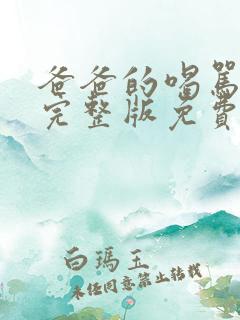 爸爸的喝罵
完整版免費
白瑪玉
未经同意禁止转载